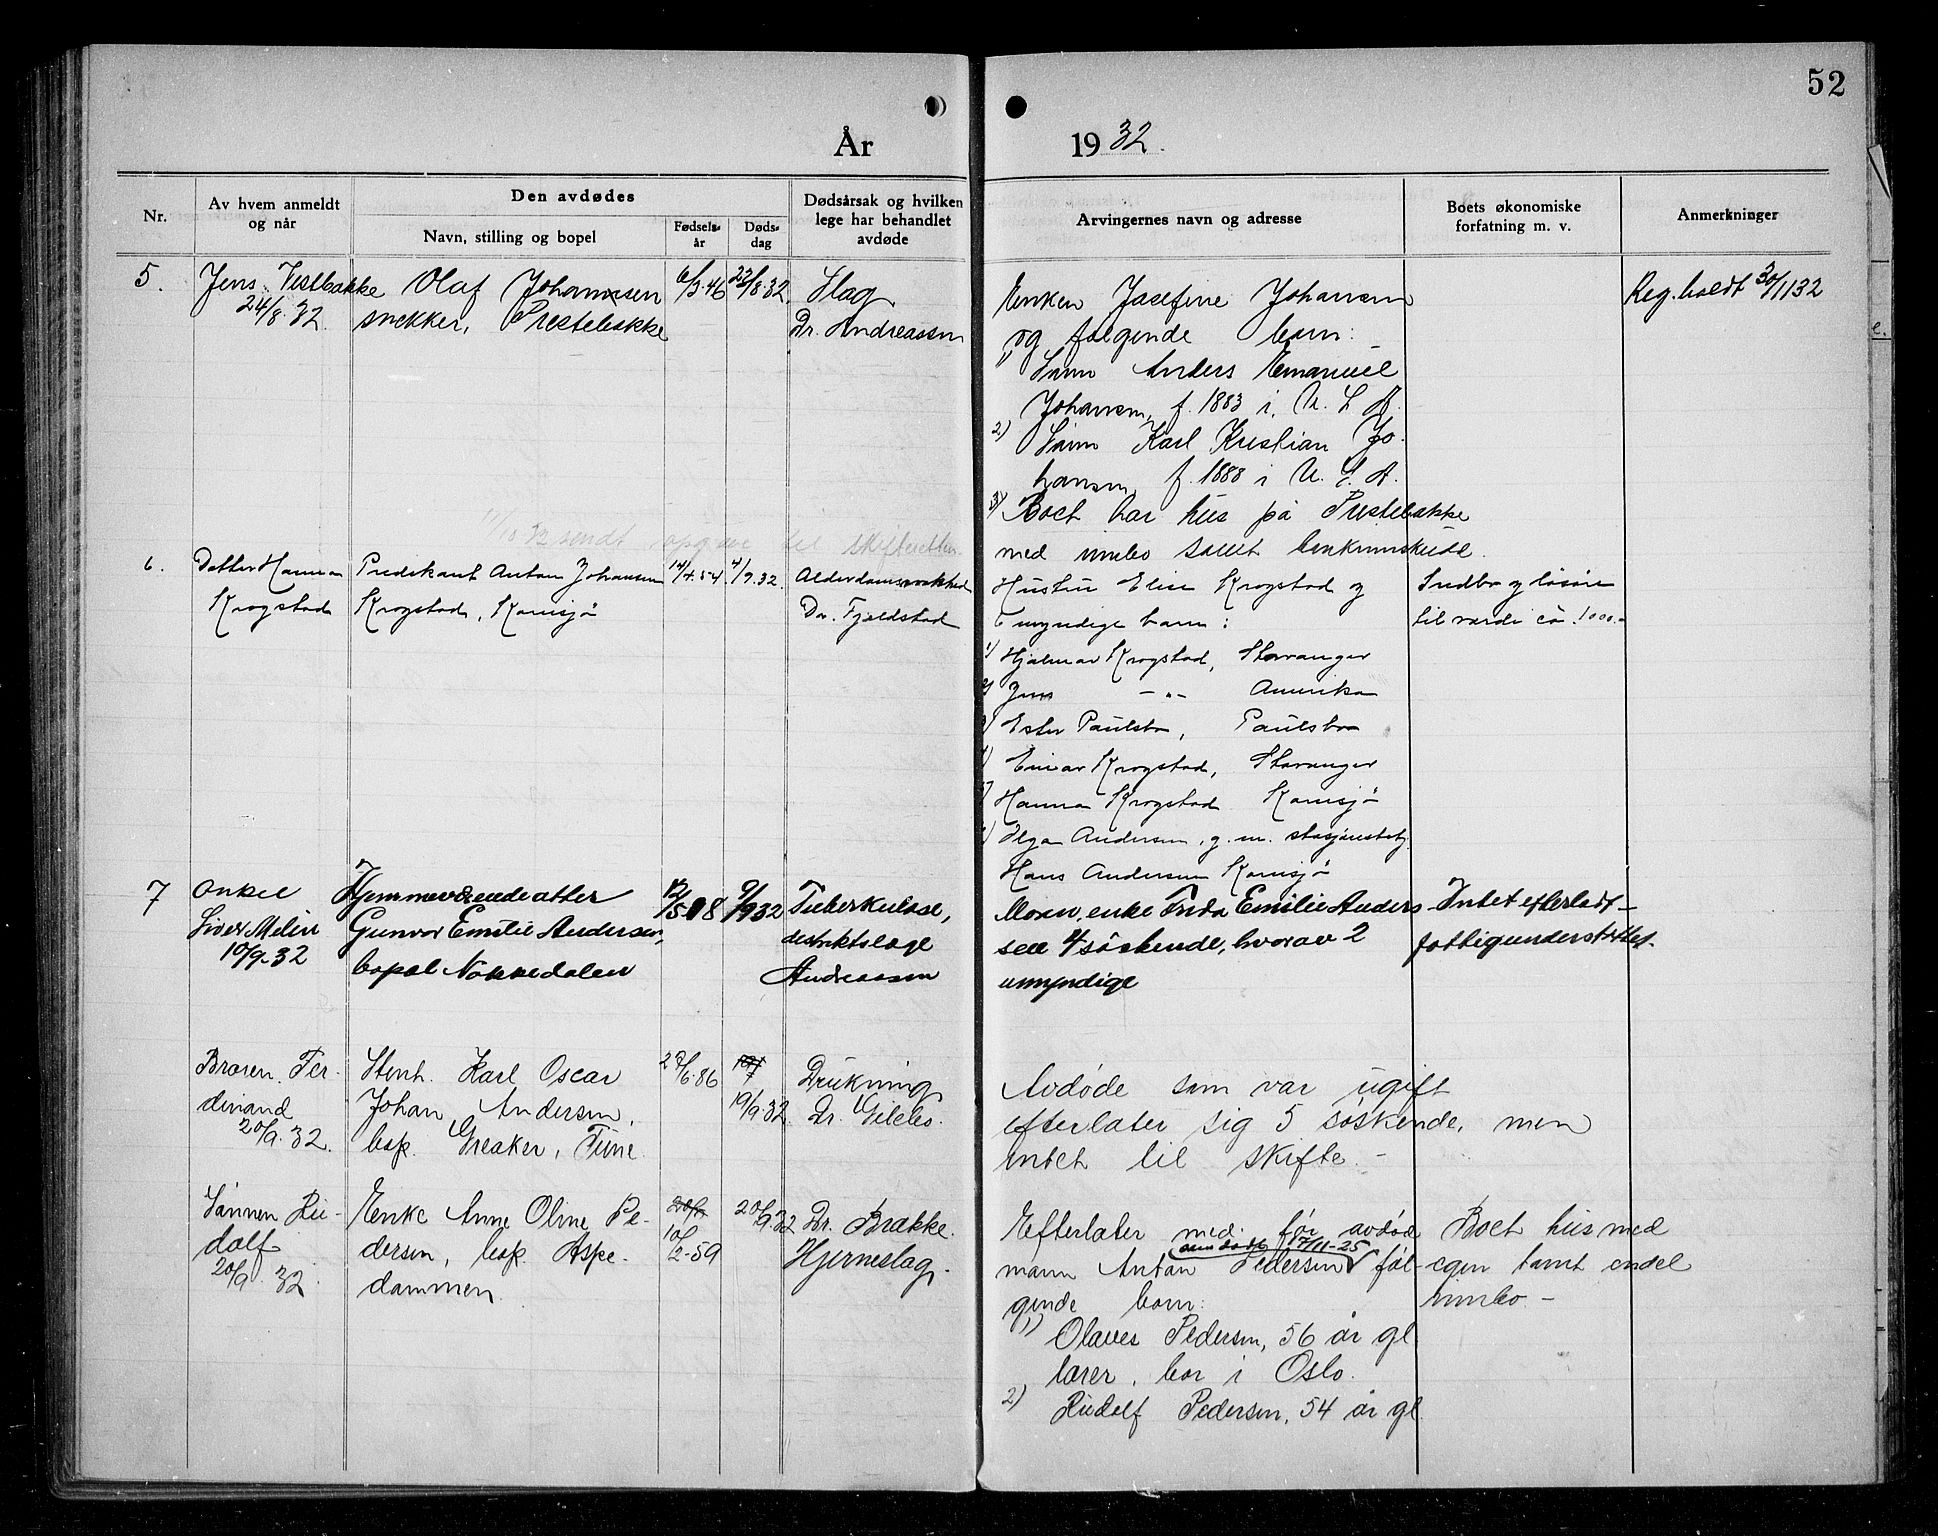 52
År 1932.
Nr.
Av hvem anmeldt
og når
Den avdødes
Navn, stilling og bopel
Fødsels-
år
Døds-
dag
Dødsårsak og hvilken
lege har behandlet
avdøde
Arvingernes navn og adresse
Boets økonomiske
forfatning m. v.
Anmerkninger
5.
Jens Vestbakke
24/8.32.
Olaf Johannesen
snekker, Prestebakke
6/3.46
22/8.32.
Slag.
Dr. Andreassen
Enken Josefine Johansen
og følgende barn:
1) Sønn Anders Emanuel
Johansen, f. 1883 i U. S. A.
2) Sønn Karl Kristian Jo-
hansen, f. 1888 i U. S. A.
3) Boet har hus på Prestebakke
med innbo samt
Reg. holdt 30/11 32
11/10 32 sendt opgave til skifteretten
6.
Datter Hanna
Krogstad
Predikant Anton Johansen
Krogstad, Kornsjø
14/4.54
4/9.32.
Alderdomssvakhed
Dr. Fjeldstad
Hustru Elise Krogstad og
6 myndige barn:
1) Hjalmar Krogstad, Stavanger
2) Jens -"- Amerika
3) Ester Paulsbo, Paulsbo
4) Einar Krogstad, Stavanger
5) Hanna Krogstad Kornsjø
6) Olga Andersen, g. m. stasjonsbetj.
Hans Andersen Kornsjø
Indbo og løsøre
til verdi ca. 1000.-
7
Onkel
Siver Melin
10/9-32
Hjemmeværende datter
Gunvor Emilie Andersen,
bopel Nokkedalen
12/5 08
9/9 32
Tuberkulose,
distriktslæge
Andreassen
Moren, enke Frida Emilie Anders-
sen 4 søskende, hvorav 2
umyndige
Intet efterladt-
fattigunderstøttet.
Broren Fer-
dinand
20/9.32.
Stenh. Karl Oscar
Johan Andersen,
bop. Greaker, Tune
27/6.86
19/9.32.
Drukning
Dr.
Avdøde som var ugift
efterlater sig 5 søskende, men
intet til skifte.-
Sønnen Ru-
dolf
20/9.32
Enke Anne Oline Pe-
dersen, bop. Aspe-
dammen
10/2-59
20/9.32
Dr. Brække.
Hjerneslag.
Efterlater med før avdød
som døde 17/11-25
mann Anton Pedersen føl-
gende barn:
1) Olaves Pedersen, 56 år gl
lærer, bor i Oslo.
2) Rudolf Pedersen, 54 år gl
Boet hus med
egen tomt endel
innbo.-